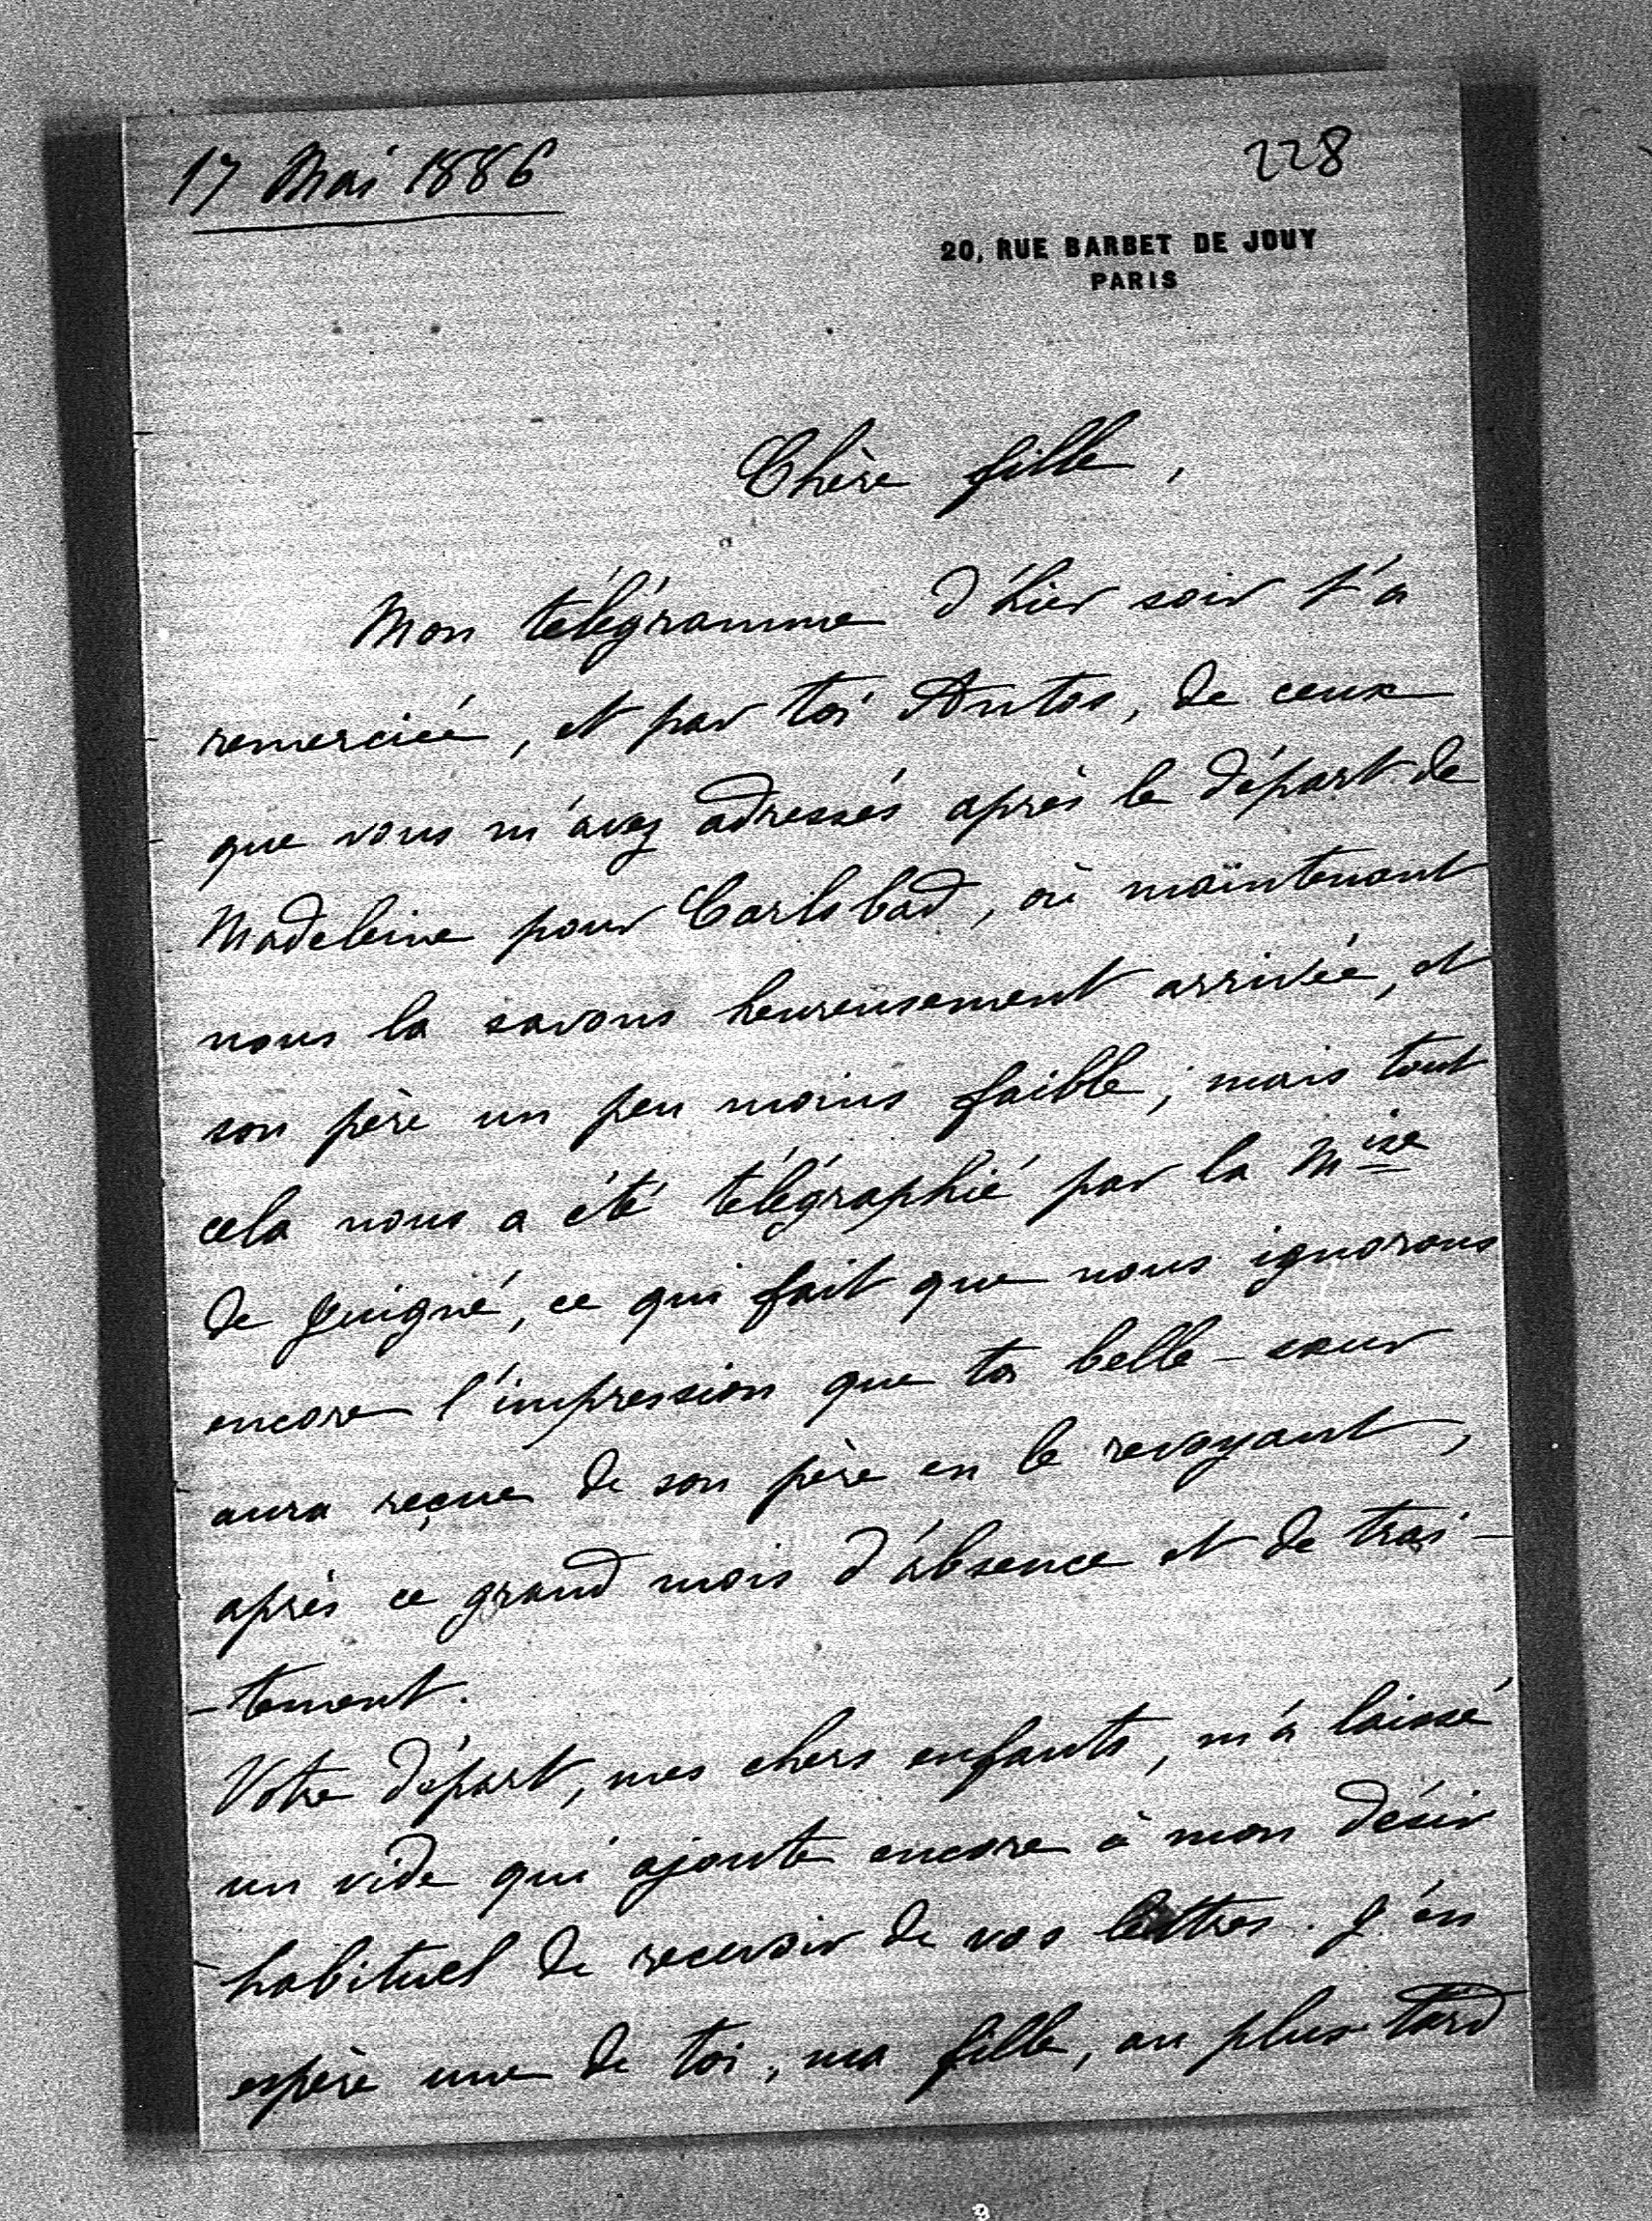 17 Mai 1886
228
20, RUE BARBET DE JOUY
PARIS
Chère fille,
Mon télégramme d'hier soir t'a
remerciée, et par toi Antos, de ceux
que vous m'avez adressés après le départ de
Madeleine pour Carlsbad, où maintenant
nous la savons heureusement arrivée, et
son père un peu moins faible; mais tout
cela nous a été télégraphié par la Mise
de Juigné, ce qui fait que nous ignorons
encore l'impression que ta belle-sœur
aura reçue de son père en le revoyant,
après ce grand mois d'absence et de trai-
-tement.
Votre départ, mes chers enfants, m'a laissé
un vide qui ajoute encore à mon désir
habituel de recevoir de vos lettres. J'en
espère une de toi, ma fille, au plus tard